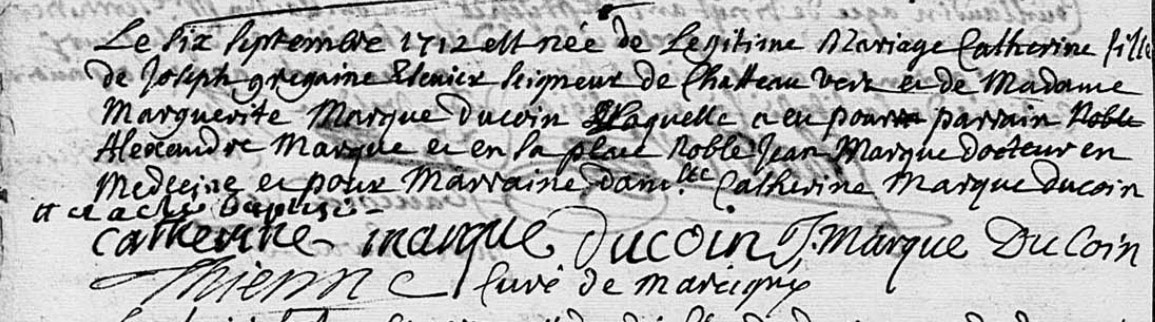 Le six septembre 1712 est née de Legitime Mariage Catherine fille
de Joseph gregaine seigneur de Chatteau vert et de Madame
Marguerite Marque ducoin Laquelle a eu pour parrain Noble
Alexandre Marque et en sa place Noble Jean Marque docteur en
Medecine et pour Marraine dam.lle Catherine Marque Ducoin
et a esté baptisée
Catherine marque ducoin J. Marque Du Coin
Curé de marcigny